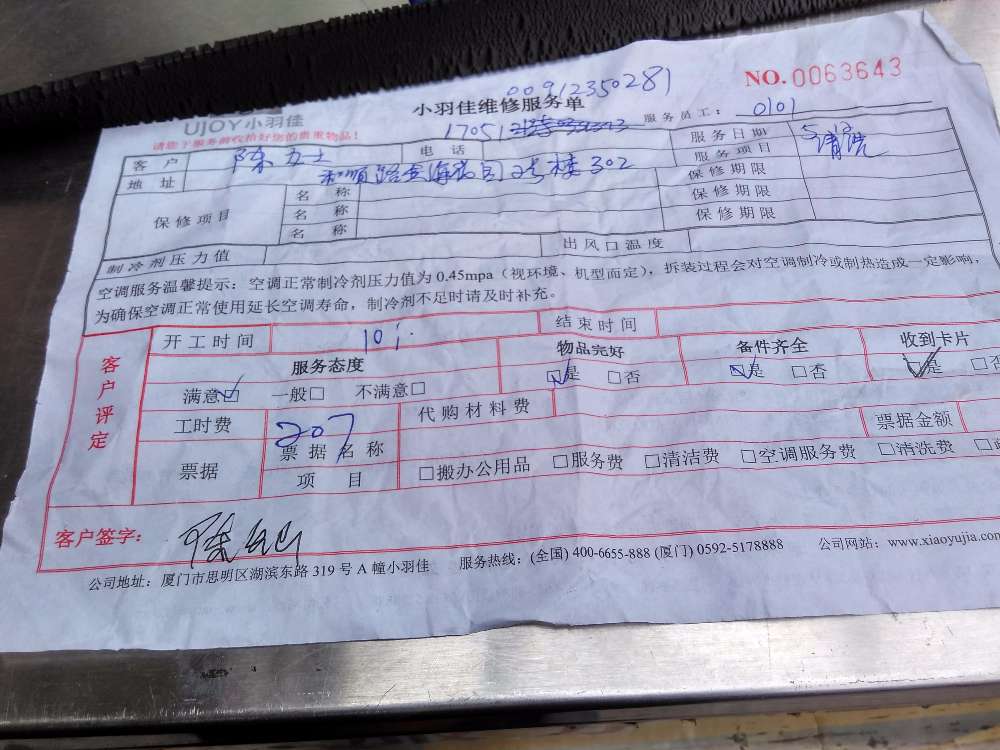 00912350281
NO.0063643
小羽佳维修服务单
UJOY小羽佳
请您于服务前收拾好您的贵重物品!
17051
服务员工: 0101
客户 陈 电话 服务日期
地址 和顺路 2号楼302 服务项目 清洗
保修项目 名称 保修期限
名称 保修期限
名称 保修期限
制冷剂压力值 出风口温度
空调服务温馨提示:空调正常制冷剂压力值为0.45mpa(视环境、机型而定),拆装过程会对空调制冷或制热造成一定影响,
为确保空调正常使用延长空调寿命,制冷剂不足时请及时补充。
客户评定
开工时间 10 结束时间
服务态度 物品完好 备件齐全 收到卡片
满意☑ 一般□ 不满意□ ☑是 □否 ☑是 □否 ☑是 □否
工时费 207 代购材料费 票据金额
票据 票据名称
项目 □搬办公用品 □服务费 □清洁费 □空调服务费 □清洗费
客户签字: 陈
公司地址:厦门市思明区湖滨东路319号A幢小羽佳 服务热线:(全国) 400-6655-888 (厦门) 0592-5178888 公司网站:www.xiaoyujia.com